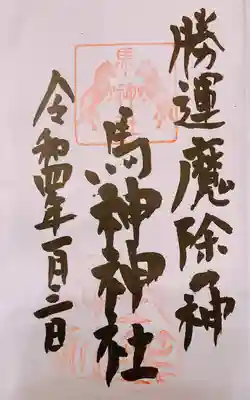 勝運魔除の神
馬神神社
令和四年一月二日